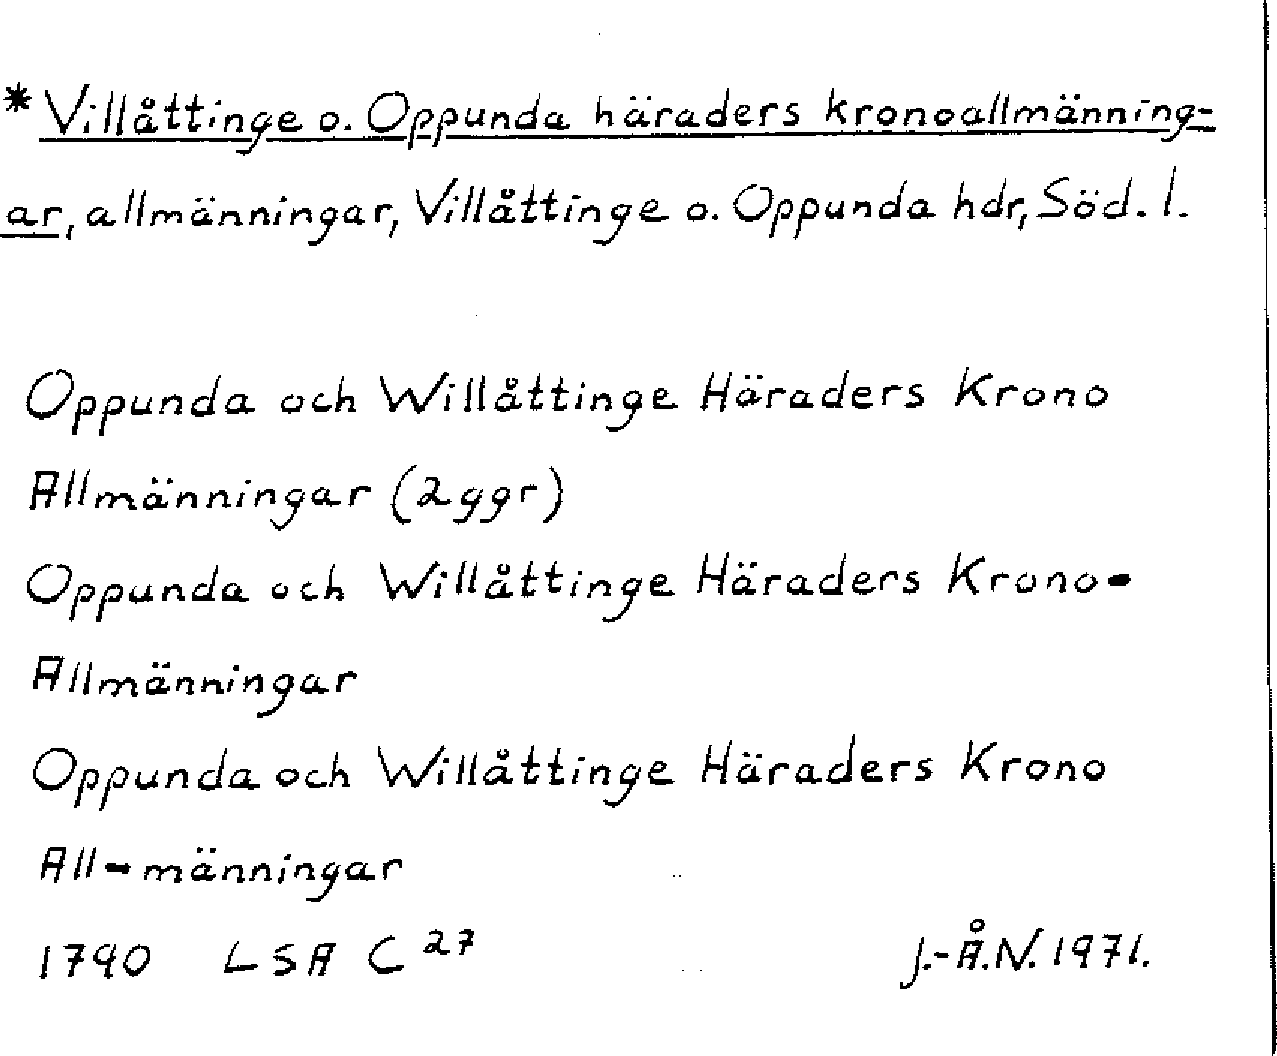 * Villåttinge o. Oppunda häraders kronoallmänning-
ar, allmänningar, Villåttinge o. Oppunda hdr, Söd. l.
Oppunda och Willåttinge Häraders Krono
Allmänningar (2 ggr)
Oppunda och Willåttinge Häraders Krono-
Allmänningar
Oppunda och Willåttinge Häraders Krono
All-männingar
1790 LSA C 27 J.-Å.N. 1971.